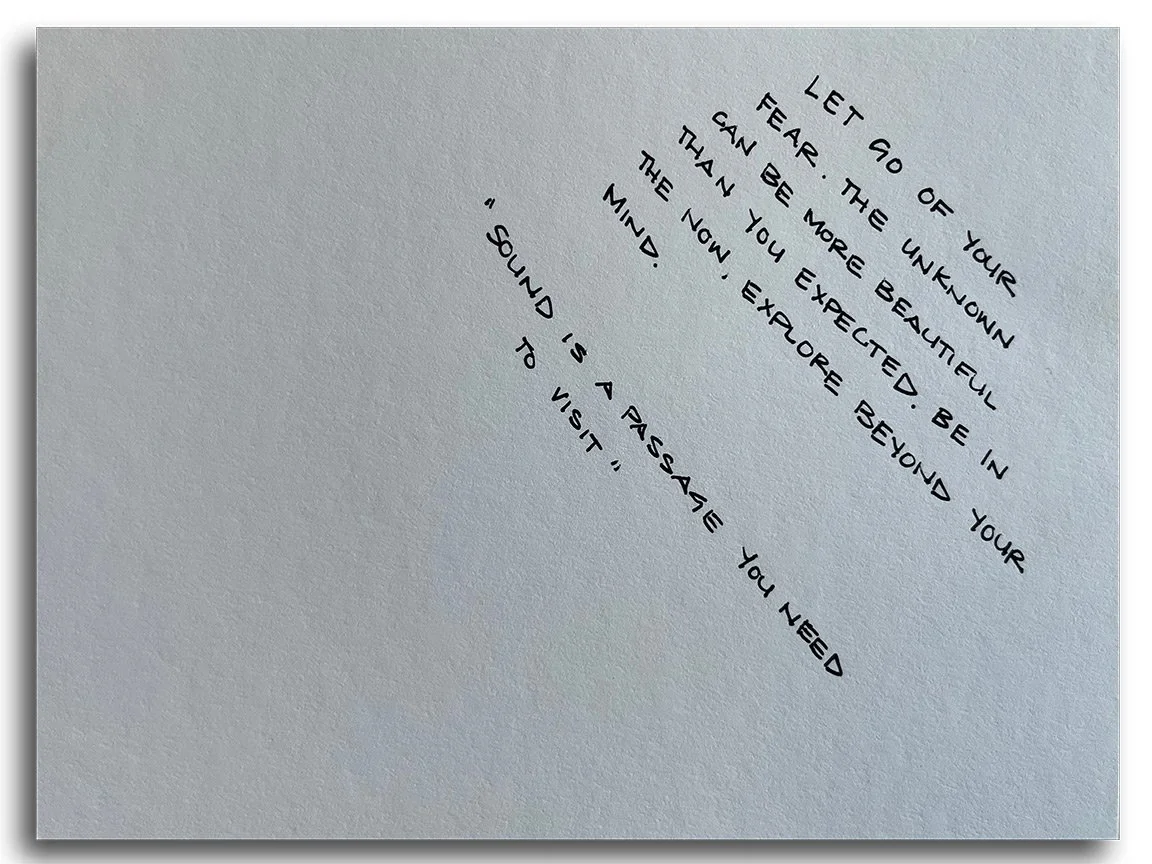 LET GO OF YOUR
FEAR. THE UNKNOWN
CAN BE MORE BEAUTIFUL
THAN YOU EXPECTED. BE IN
THE NOW, EXPLORE BEYOND YOUR
MIND.
"SOUND IS A PASSAGE YOU NEED
TO VISIT"